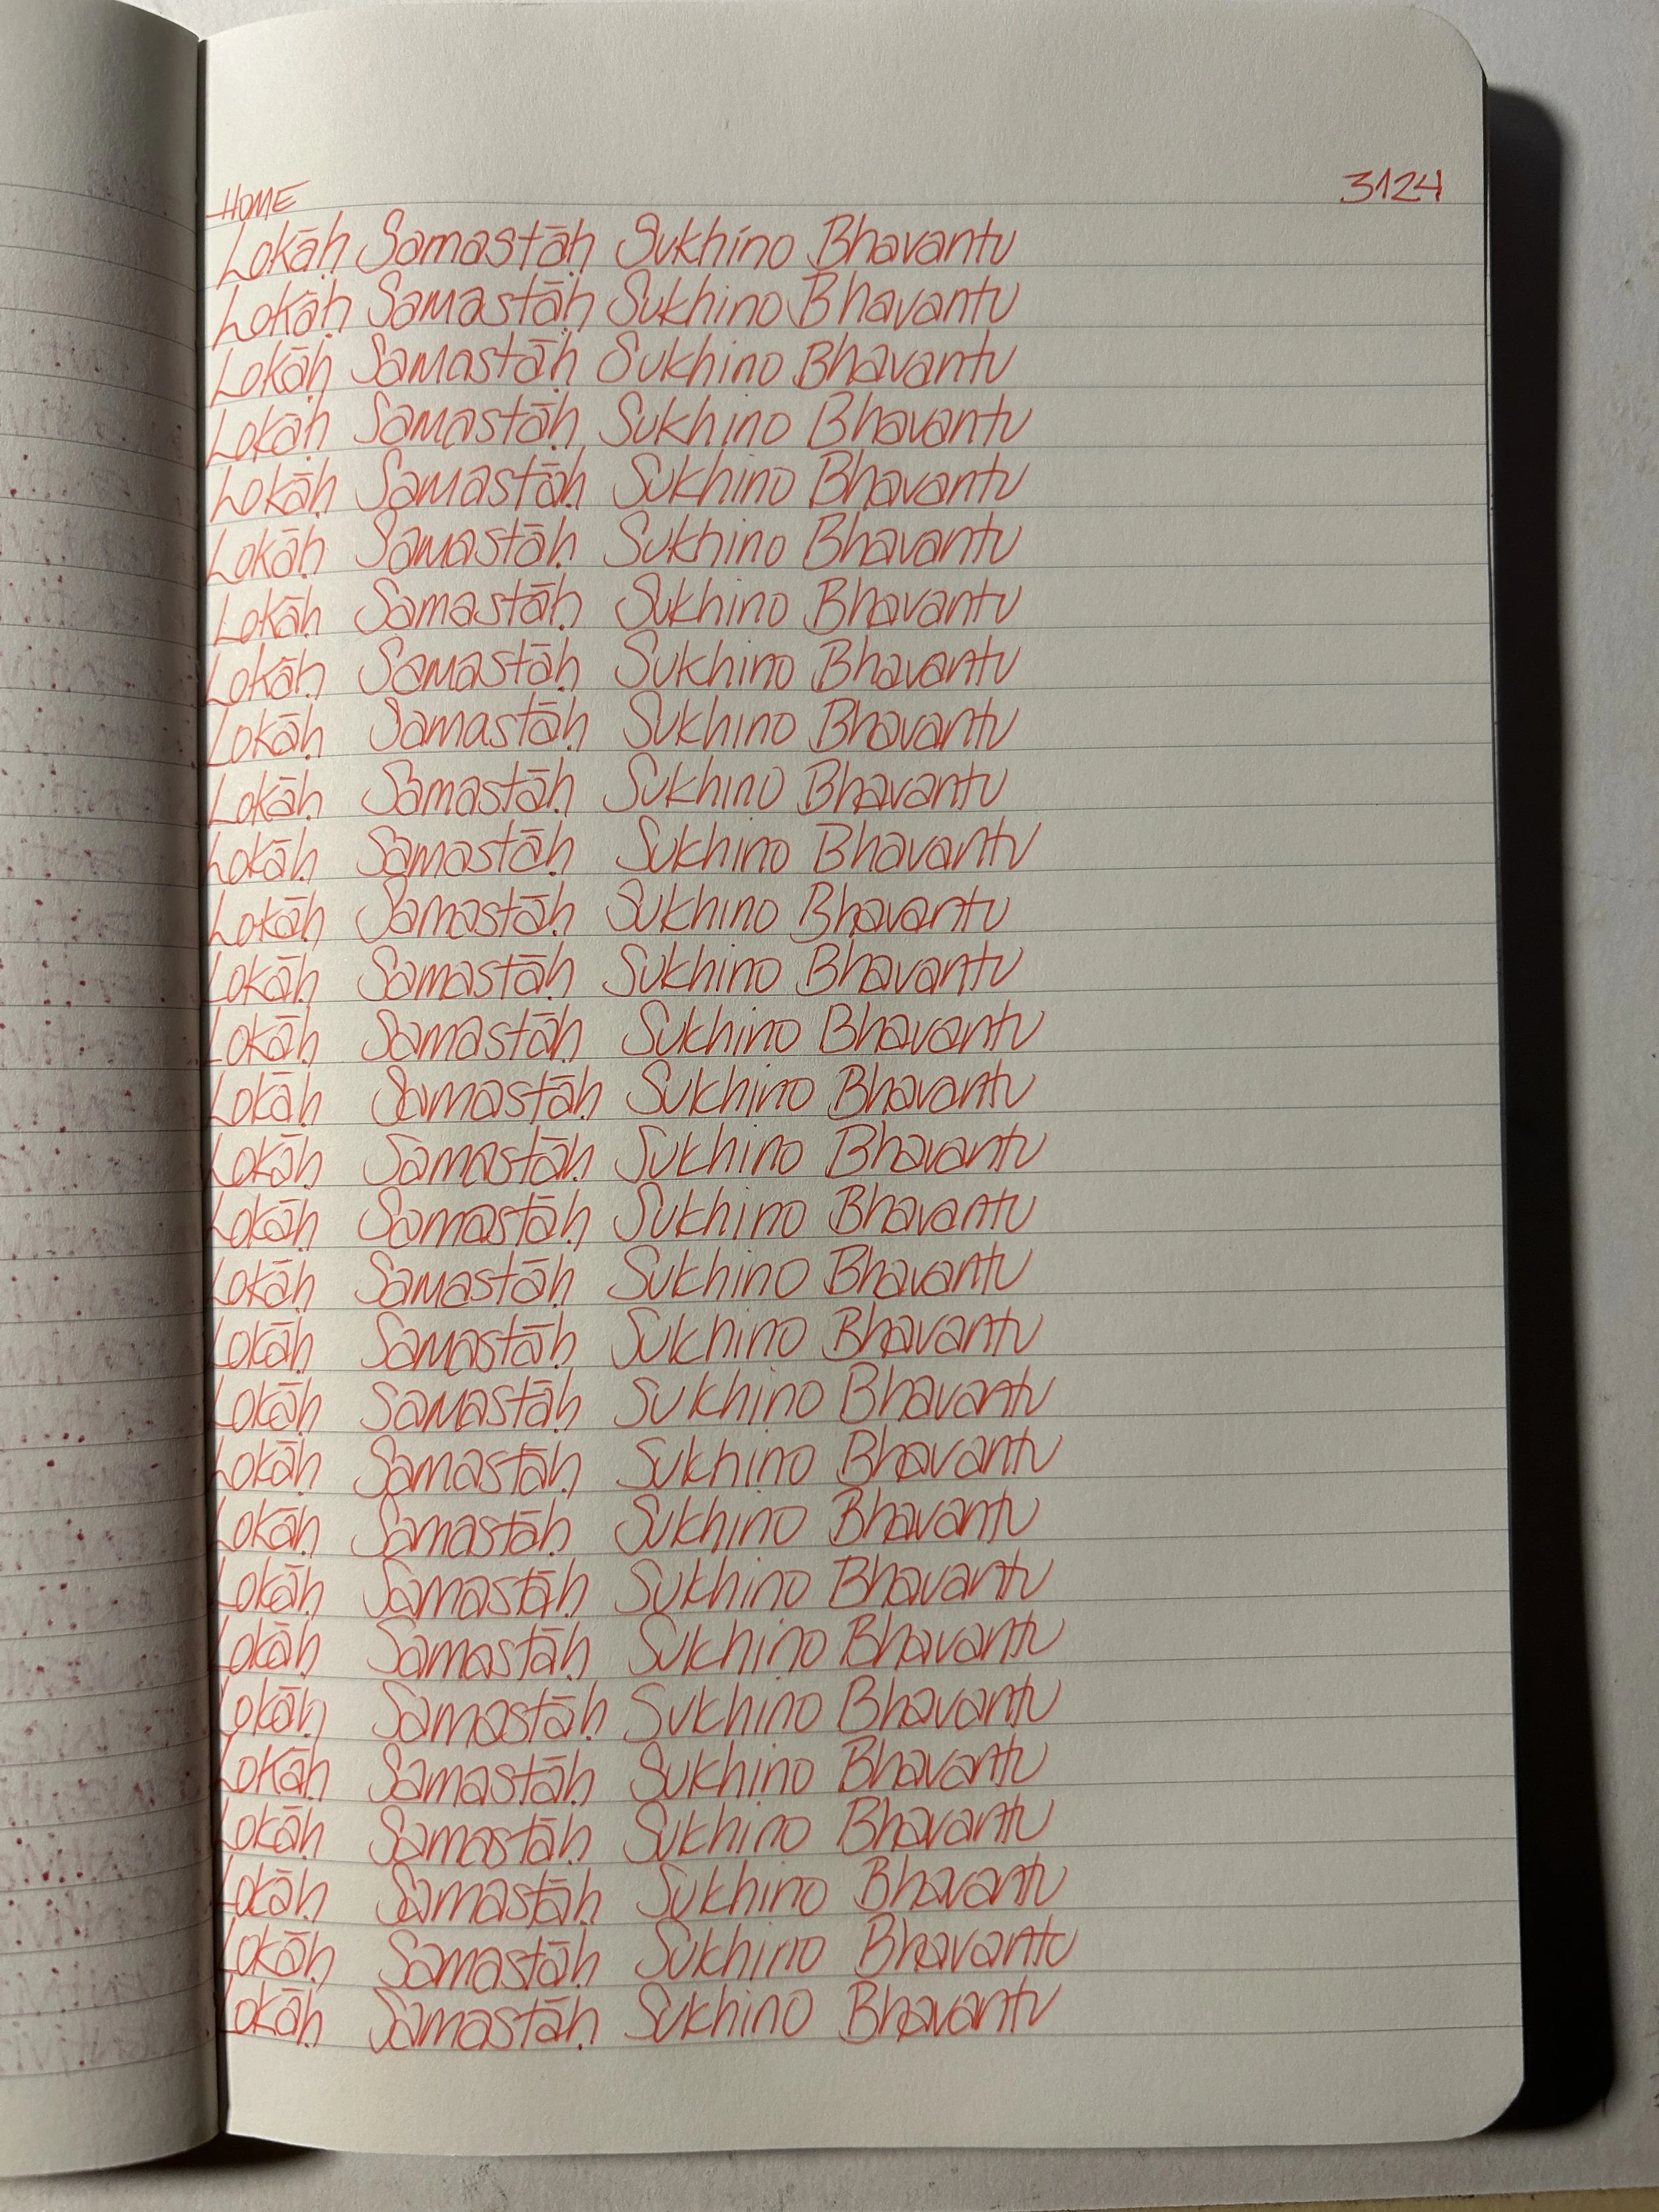 HOME 3124
Lokāḥ Samastāḥ Sukhino Bhavantu
Lokāḥ Samastāḥ Sukhino Bhavantu
Lokāḥ Samastāḥ Sukhino Bhavantu
Lokāḥ Samastāḥ Sukhino Bhavantu
Lokāḥ Samastāḥ Sukhino Bhavantu
Lokāḥ Samastāḥ Sukhino Bhavantu
Lokāḥ Samastāḥ Sukhino Bhavantu
Lokāḥ Samastāḥ Sukhino Bhavantu
Lokāḥ Samastāḥ Sukhino Bhavantu
Lokāḥ Samastāḥ Sukhino Bhavantu
Lokāḥ Samastāḥ Sukhino Bhavantu
Lokāḥ Samastāḥ Sukhino Bhavantu
Lokāḥ Samastāḥ Sukhino Bhavantu
Lokāḥ Samastāḥ Sukhino Bhavantu
Lokāḥ Samastāḥ Sukhino Bhavantu
Lokāḥ Samastāḥ Sukhino Bhavantu
Lokāḥ Samastāḥ Sukhino Bhavantu
Lokāḥ Samastāḥ Sukhino Bhavantu
Lokāḥ Samastāḥ Sukhino Bhavantu
Lokāḥ Samastāḥ Sukhino Bhavantu
Lokāḥ Samastāḥ Sukhino Bhavantu
Lokāḥ Samastāḥ Sukhino Bhavantu
Lokāḥ Samastāḥ Sukhino Bhavantu
Lokāḥ Samastāḥ Sukhino Bhavantu
Lokāḥ Samastāḥ Sukhino Bhavantu
Lokāḥ Samastāḥ Sukhino Bhavantu
Lokāḥ Samastāḥ Sukhino Bhavantu
Lokāḥ Samastāḥ Sukhino Bhavantu
Lokāḥ Samastāḥ Sukhino Bhavantu
Lokāḥ Samastāḥ Sukhino Bhavantu